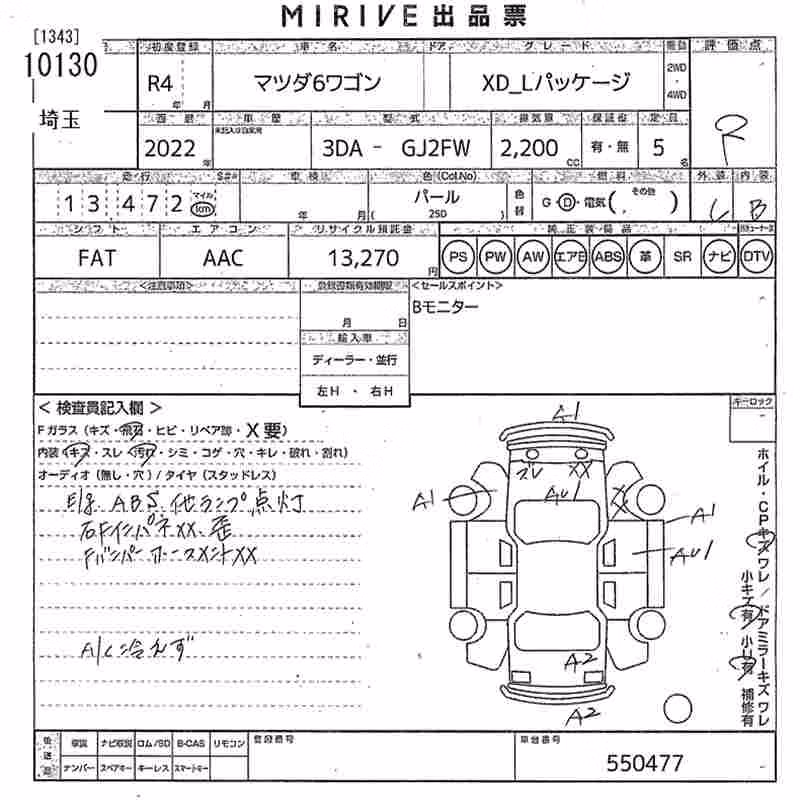 MIRIVE 出品票
[1343]
10130
埼玉
初度登録 車名 ドア グレード 駆動 評価点
R4 年 月 マツダ6ワゴン XD_Lパッケージ 2WD ・ 4WD
R
西暦 車歴 型式 排気量 保証書 定員
2022 年 未記入は自家用 3DA - GJ2FW 2,200 CC 有・無 5 名
走行 車検 色(Col.No) 燃料 外装 内装
13472 マイル km 年 月 パール ( 25D ) 色替 G・D・電気( その他 ) C B
シフト エアコン リサイクル預託金 純正装備品
FAT AAC 13,270 円 PS PW AW エアB ABS 革 SR ナビ DTV
<注意事項> 登録書類有効期限 <セールスポイント>
月 日 Bモニター
輸入車
ディーラー・並行
左H ・ 右H
< 検査員記入欄 > キーロック
Fガラス (キズ・飛石・ヒビ・リペア跡・X要)
内装 (キズ・スレ・汚れ・シミ・コゲ・穴・キレ・破れ・割れ)
オーディオ (無し・穴) / タイヤ (スタッドレス)
E/g ABS 他ランプ点灯
右Fインパネ XX、歪
Fバンパーホースメント XX
A/C 冷えず
A1
ズレ XX
A1 AU1 XX A1
AU1
A2
A2
ホイル・CPキズワレ / ドアミラーキズワレ
小キズ有 小U有 補修有
後送品 取説 ナビ取説 ロム/SD B-CAS リモコン 登録番号 車台番号
ナンバー スペアキー キーレス スマートキー 550477